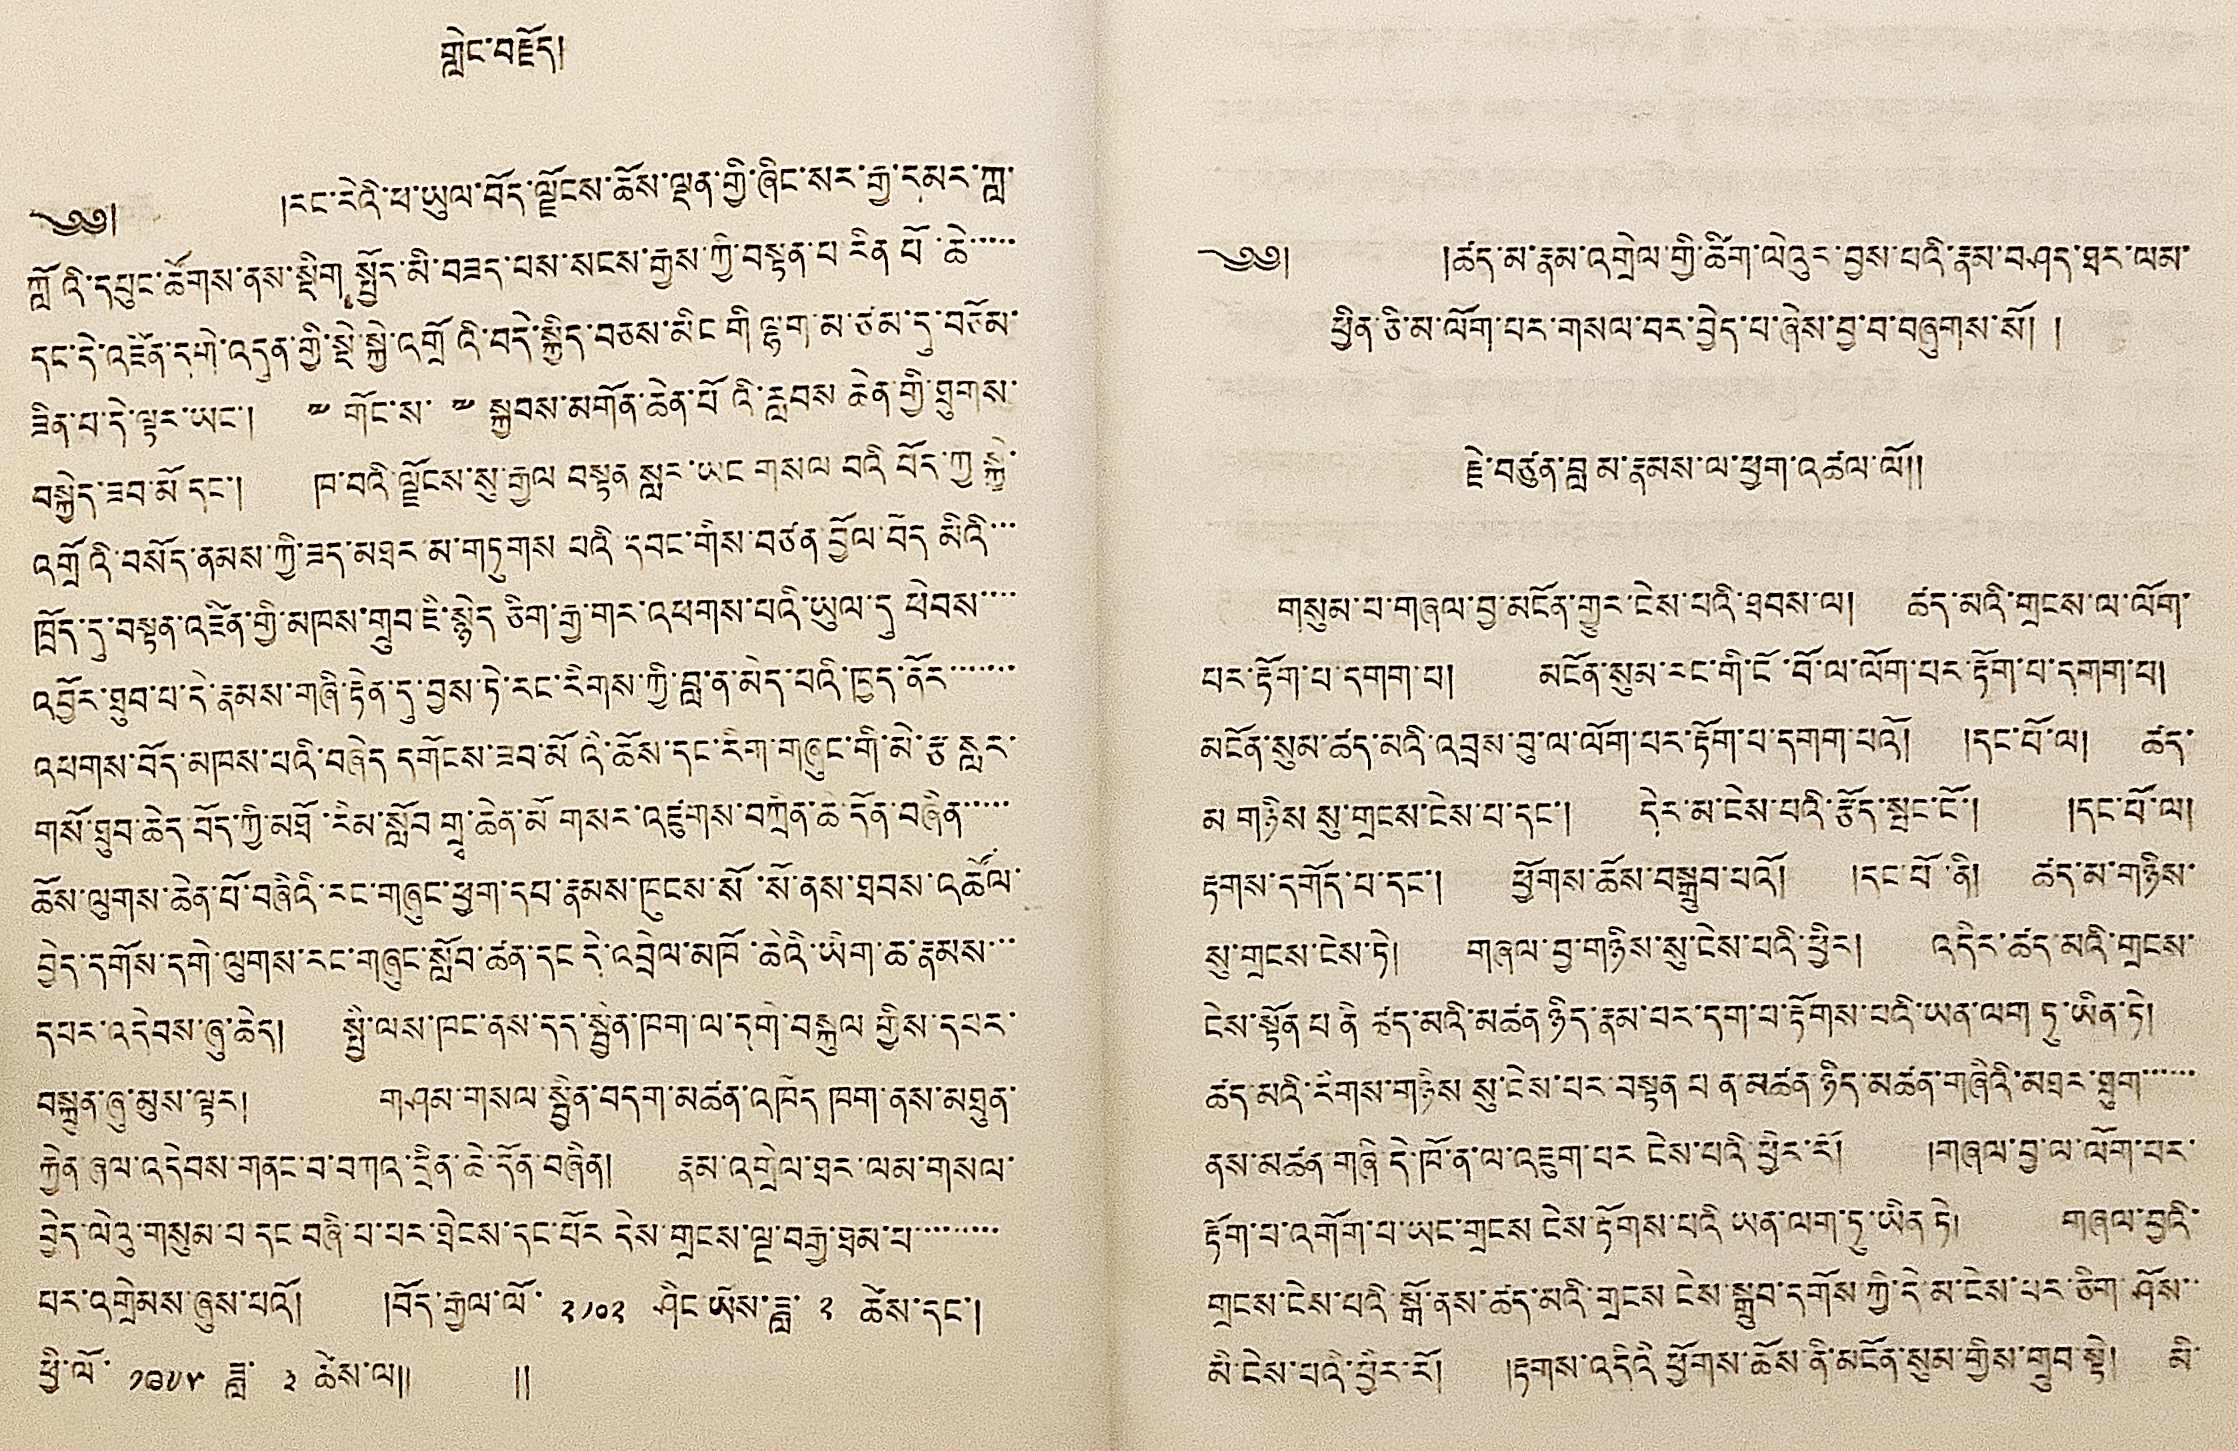 གླེང་བརྗོད།
༄༅། །རང་རེའི་ཕ་ཡུལ་བོད་ལྗོངས་ཆོས་ལྡན་གྱི་ཞིང་སར་རྒྱ་དམར་ཀླ་
ཀློའི་དཔུང་ཚོགས་ནས་སྡིག་སྤྱོད་མི་བཟད་པས་སངས་རྒྱས་ཀྱི་བསྟན་པ་རིན་པོ་ཆེ་
དང་དེ་འཛིན་དགེ་འདུན་གྱི་སྡེ་སྐྱེ་འགྲོའི་བདེ་སྐྱིད་བཅས་མིང་གི་ལྷག་མ་ཙམ་དུ་བཅོམ་
ཟིན་པ་དེ་ལྟར་ཡང་། ྉ གོང་ས་ ྉ སྐྱབས་མགོན་ཆེན་པོའི་རླབས་ཆེན་གྱི་ཐུགས་
བསྐྱེད་ཟབ་མོ་དང་། ཁ་བའི་ལྗོངས་སུ་རྒྱལ་བསྟན་སླར་ཡང་གསལ་བའི་བོད་ཀྱི་སྐྱེ་
འགྲོའི་བསོད་ནམས་ཀྱི་ཟད་མཐར་མ་གཏུགས་པའི་དབང་གིས་བཙན་བྱོལ་བོད་མིའི་
ཁྲོད་དུ་བསྟན་འཛིན་གྱི་མཁས་གྲུབ་ཇི་སྙེད་ཅིག་རྒྱ་གར་འཕགས་པའི་ཡུལ་དུ་ཕེབས་
འབྱོར་ཐུབ་པ་དེ་རྣམས་གཞི་རྟེན་དུ་བྱས་ཏེ་རང་རིགས་ཀྱི་བླ་ན་མེད་པའི་ཁྱད་ནོར་
འཕགས་བོད་མཁས་པའི་བཞེད་དགོངས་ཟབ་མོའི་ཆོས་དང་རིག་གཞུང་གི་མེ་རྩ་སླར་
གསོ་ཐུབ་ཆེད་བོད་ཀྱི་མཐོ་རིམ་སློབ་གྲྭ་ཆེན་མོ་གསར་འཛུགས་བཀྲིན་ཆེ་དོན་བཞིན་
ཆོས་ལུགས་ཆེན་པོ་བཞིའི་རང་གཞུང་ཕྱག་དཔེ་རྣམས་ཁུངས་སོ་སོ་ནས་ཐབས་འཚོལ་
བྱེད་དགོས་དགེ་ལུགས་རང་གཞུང་སློབ་ཚན་དང་དེ་འབྲེལ་མཁོ་ཆེའི་ཡིག་ཆ་རྣམས་
དཔར་འདེབས་ཞུ་ཆེད། སྤྱི་ལས་ཁང་ནས་དད་སྦྱིན་ཁག་ལ་དགེ་བསྐུལ་གྱིས་དཔར་
བསྐྲུན་ཞུ་མུས་ལྟར། གཤམ་གསལ་སྦྱིན་བདག་མཚན་འཁོད་ཁག་ནས་མཐུན་
རྐྱེན་ཞལ་འདེབས་གནང་བ་བཀའ་དྲིན་ཆེ་དོན་བཞིན། རྣམ་འགྲེལ་ཐར་ལམ་གསལ་
བྱེད་ལེའུ་གསུམ་པ་དང་བཞི་པ་པར་ཐེངས་དང་པོར་དེས་གྲངས་ལྔ་བརྒྱ་ཐམ་པ་
པར་འགྲེམས་ཞུས་པའོ། །བོད་རྒྱལ་ལོ་ ༢༡༠༢ ཤིང་ཡོས་ཟླ་ ༢ ཚེས་དང་།
ཕྱི་ལོ་ ༡༩༧༥ ཟླ་ ༣ ཚེས་ལ༎ ༎
༄༅། །ཚད་མ་རྣམ་འགྲེལ་གྱི་ཚིག་ལེའུར་བྱས་པའི་རྣམ་བཤད་ཐར་ལམ་
ཕྱིན་ཅི་མ་ལོག་པར་གསལ་བར་བྱེད་པ་ཞེས་བྱ་བ་བཞུགས་སོ། །
རྗེ་བཙུན་བླ་མ་རྣམས་ལ་ཕྱག་འཚལ་ལོ༎
གསུམ་པ་གཞལ་བྱ་མངོན་གྱུར་ངེས་པའི་ཐབས་ལ། ཚད་མའི་གྲངས་ལ་ལོག་
པར་རྟོག་པ་དགག་པ། མངོན་སུམ་རང་གི་ངོ་བོ་ལ་ལོག་པར་རྟོག་པ་དགག་པ།
མངོན་སུམ་ཚད་མའི་འབྲས་བུ་ལ་ལོག་པར་རྟོག་པ་དགག་པའོ། །དང་པོ་ལ། ཚད་
མ་གཉིས་སུ་གྲངས་ངེས་པ་དང་། དེར་མ་ངེས་པའི་རྩོད་སྤང་ངོ་། །དང་པོ་ལ།
རྟགས་དགོད་པ་དང་། ཕྱོགས་ཆོས་བསྒྲུབ་པའོ། །དང་པོ་ནི། ཚད་མ་གཉིས་
སུ་གྲངས་ངེས་ཏེ། གཞལ་བྱ་གཉིས་སུ་ངེས་པའི་ཕྱིར། འདིར་ཚད་མའི་གྲངས་
ངེས་སྟོན་པ་ནི་ཚད་མའི་མཚན་ཉིད་རྣམ་པར་དག་པ་རྟོགས་པའི་ཡན་ལག་ཏུ་ཡིན་ཏེ།
ཚད་མའི་རིགས་གཉིས་སུ་ངེས་པར་བསྟན་པ་ན་མཚན་ཉིད་མཚན་གཞིའི་མཐར་ཐུག་
ནས་མཚན་གཞི་དེ་ཁོ་ན་ལ་འཇུག་པར་ངེས་པའི་ཕྱིར་རོ། །གཞལ་བྱ་ལ་ལོག་པར་
རྟོག་པ་འགོག་པ་ཡང་གྲངས་ངེས་རྟོགས་པའི་ཡན་ལག་ཏུ་ཡིན་ཏེ། གཞལ་བྱའི་
གྲངས་ངེས་པའི་སྒོ་ནས་ཚད་མའི་གྲངས་ངེས་སྒྲུབ་དགོས་ཀྱི་དེ་མ་ངེས་པར་ཅིག་ཤོས་
མི་ངེས་པའི་ཕྱིར་རོ། །རྟགས་འདིའི་ཕྱོགས་ཆོས་ནི་མངོན་སུམ་གྱིས་གྲུབ་སྟེ། མི་